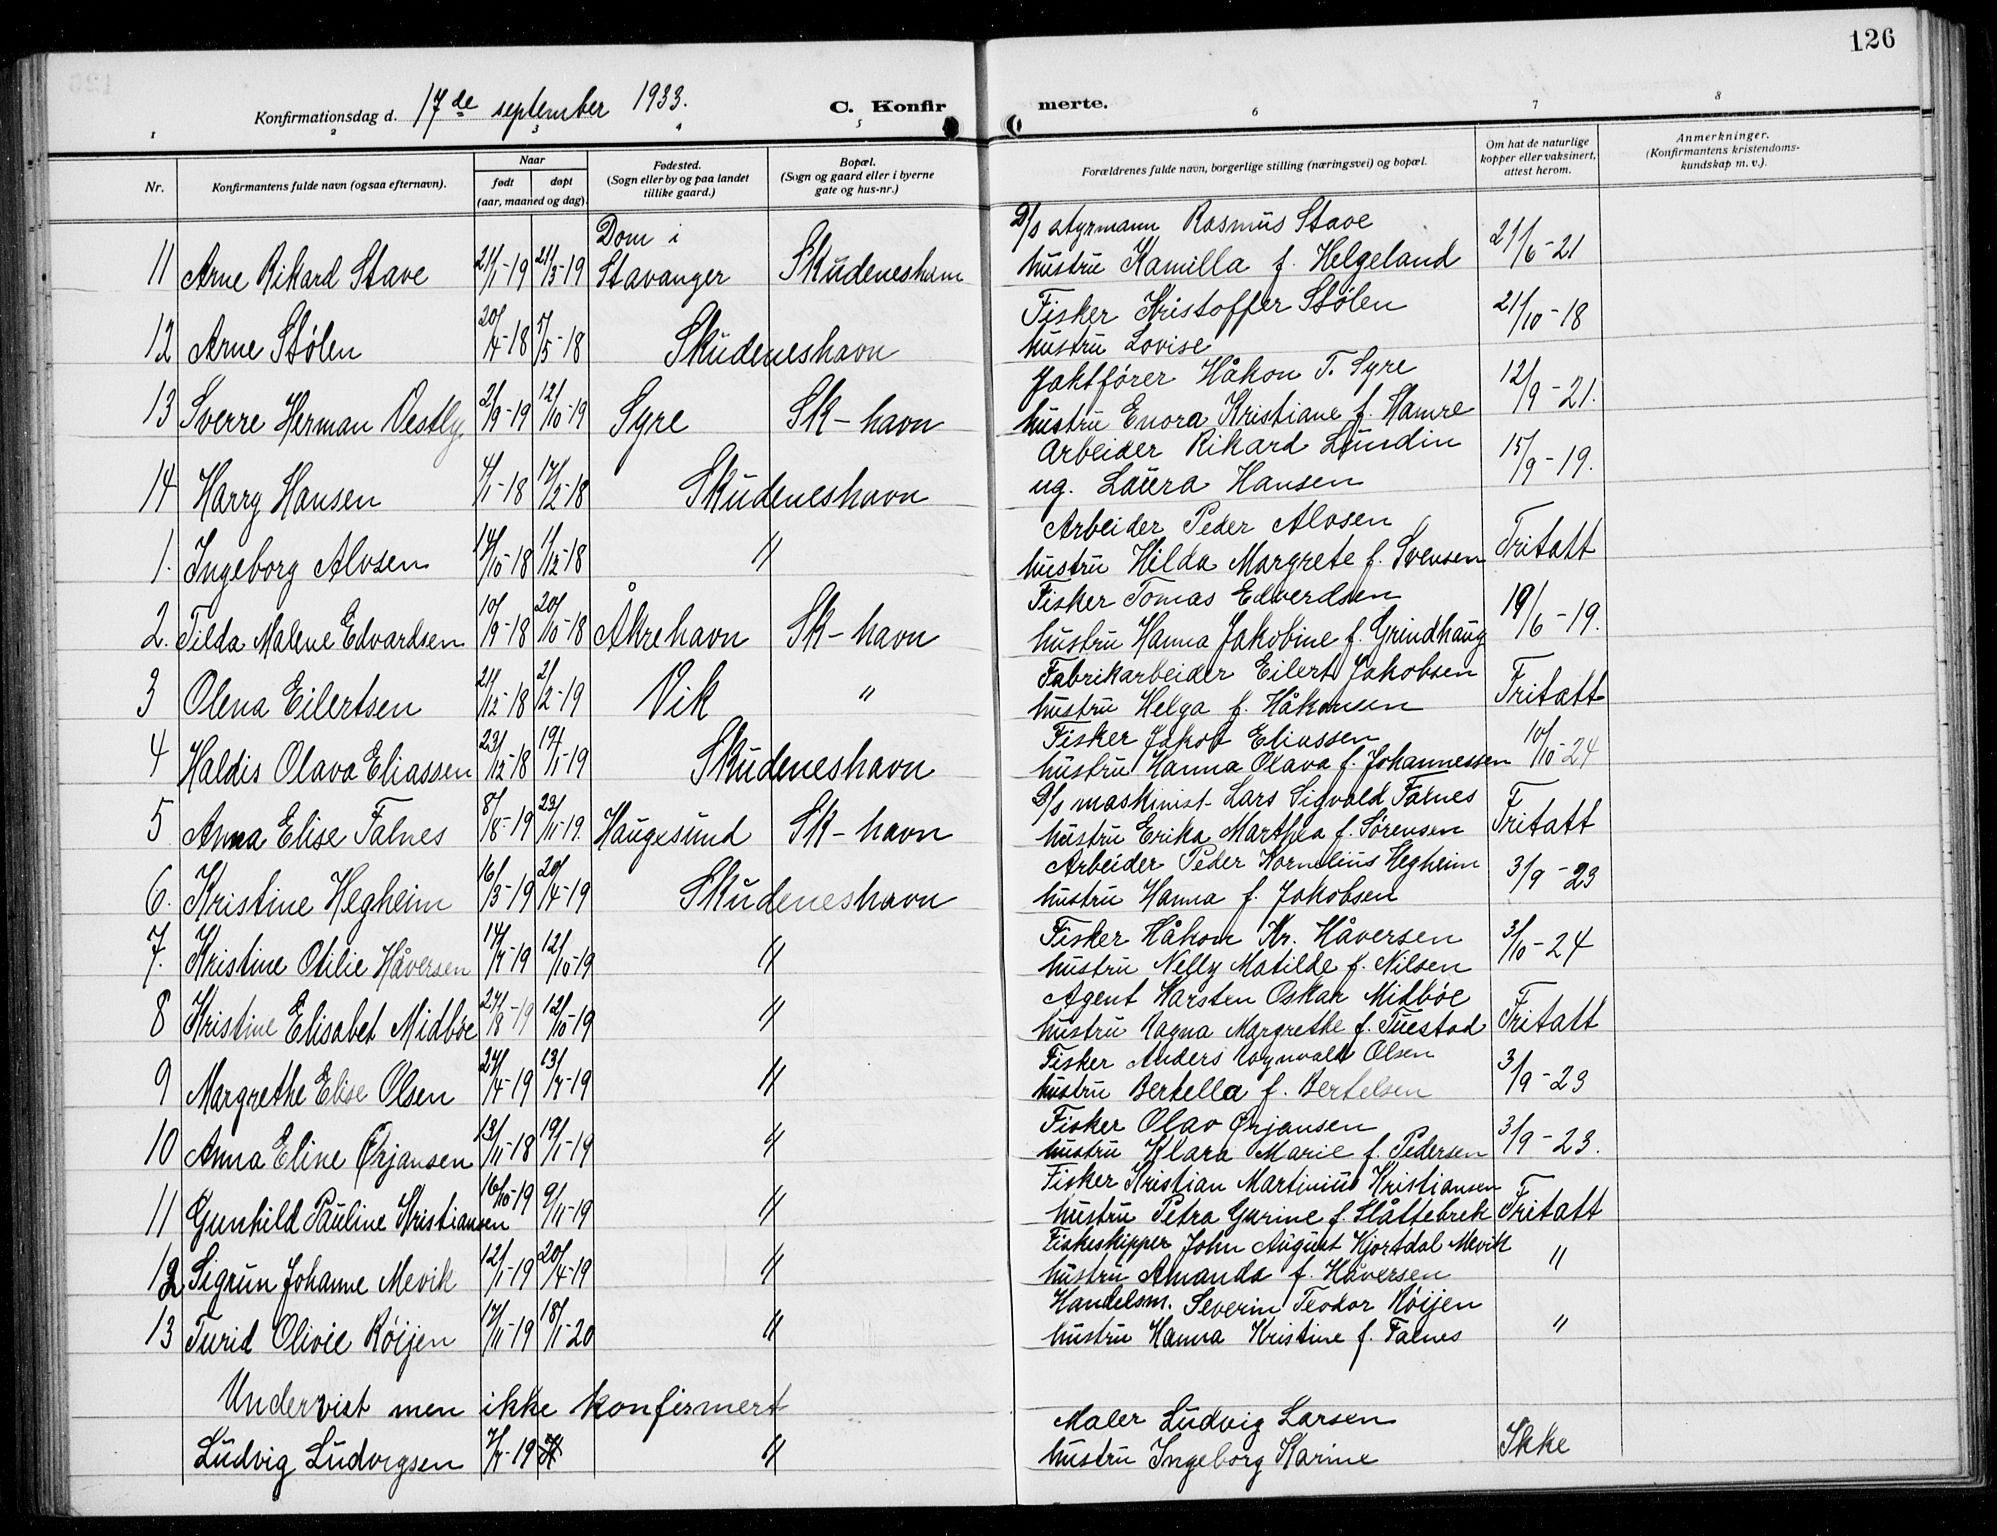 126
Konfirmationsdag d. 17de september 1933.
C. Konfirmerte.
1 2 3 4 5 6 7 8
Nr. Konfirmantens fulde navn (ogsaa efternavn). Naar født døpt (aar, maaned og dag). Fødested. (Sogn eller by og paa landet tillike gaard.) Bopæl. (Sogn og gaard eller i byerne gate og hus-nr.) Forældrenes fulde navn, borgerlige stilling (næringsvei) og bopæl. Om hat de naturlige kopper eller vaksinert, attest herom. Anmerkninger. (Konfirmantens kristendoms-kundskap m. v.).
Dom i D/s styrmann Rasmus Stave
11 Arne Rikard Stave 21/1-19 21/3-19 Stavanger Skudeneshavn hustru Kamilla f. Helgeland 21/6-21
Fisker Kristoffer Stølen
12 Arne Stølen 20/4-18 5/5-18 Skudeneshavn hustru Lovise 21/10-18
Jaktfører Håkon T. Syre
13 Sverre Herman Vestly 2/9-19 12/10-19 Syre Sk-havn hustru Enora Kristiane f. Hamre 12/9-21.
Arbeider Rikard Lundin
14 Harry Hansen 4/1-18 17/2-18 Skudeneshavn ug. Laura Hansen 15/9-19.
Arbeider Peder Alvsen
1. Ingeborg Alvsen 14/10-18 1/12-18 " hustru Hilda Margrete f. Svensen Fritatt
Fisker Tomas Edverdsen
2. Tilda Malene Edvardsen 10/9-18 20/10-18 Åkrehavn Sk-havn hustru Hanna Jakobine f. Grindhaug 19/6-19.
Fabrikarbeider Eilert Jakobsen
3 Olena Eilertsen 21/12-18 2/2-19 Vik " hustru Helga f. Håkonsen Fritatt
Fisker Jakob Eliassen
4 Haldis Olava Eliassen 23/12-18 19/1-19 Skudeneshavn hustru Hanna Olava f. Johannessen 10/10-24
D/s maskinist Lars Sigvald Falnes
5 Anna Elise Falnes 8/8-19 23/11-19. Haugesund Sk-havn hustru Erika Marthea f. Sørensen Fritatt
Arbeider Peder Kornelius Hegheim
6. Kristine Hegheim 16/3-19 20/4-19 Skudeneshavn hustru Hanna f. Jakobsen 3/9-23
Fisker Håkon Kr. Håversen
7. Kristine Otilie Håversen 14/7-19 12/10-19 " hustru Nelly Matilde f. Nilsen 3/10-24
Agent Karsten Oskar Midbøe
8 Kristine Elisabet Midbøe 27/8-19 12/10-19 " hustru Ragna Margrethe f. Tuestad Fritatt
Fisker Anders Rognvald Olsen
9 Margrethe Elise Olsen 24/4-19 13/7-19 " hustru Bertella f. Bertelsen 3/9-23
Fisker Olav Ørjansen
10 Anna Eline Ørjansen 13/11-18 19/1-19 " hustru Klara Marie f. Pedersen 3/9-23.
Fisker Kristian Martinius Kristiansen
11 Gunhild Pauline Kristiansen 16/10-19 9/11-19 " hustru Petra Gurine f. Slåttebrek Fritatt
Fiskeskipper John August Hjortdal Mevik
12 Sigrun Johanne Mevik 12/1-19 20/4-19 " hustru Amanda f. Håversen "
Handelsm. Severin Teodor Røijen
13 Turid Olivie Røijen 17/11-19 18/1-20 " hustru Hanna Kristine f. Falnes "
Undervist men ikke konfirmert
Maler Ludvig Larsen
Ludvig Ludvigsen 7/7-19 " hustru Ingeborg Karine Ikke